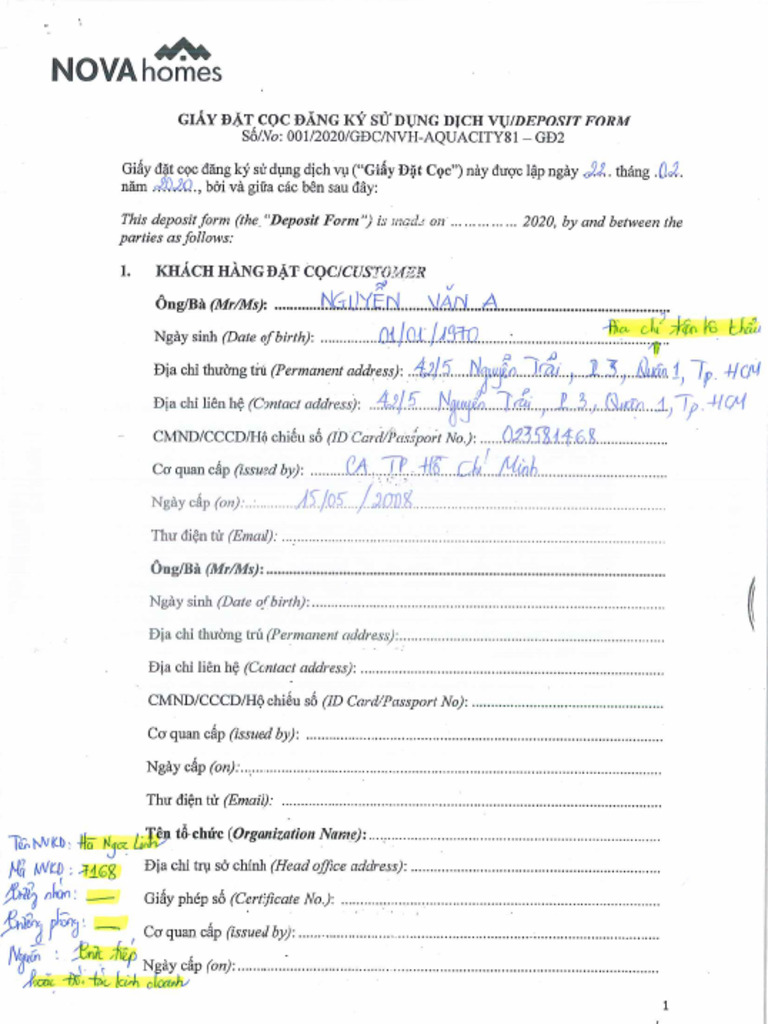 NOVA homes
GIẤY ĐẶT CỌC ĐĂNG KÝ SỬ DỤNG DỊCH VỤ/DEPOSIT FORM
Số/No: 001/2020/GĐC/NVH-AQUACITY81 – GĐ2
Giấy đặt cọc đăng ký sử dụng dịch vụ (“Giấy Đặt Cọc”) này được lập ngày .22. tháng .02.
năm 2020., bởi và giữa các bên sau đây:
This deposit form (the "Deposit Form") is made on ............... 2020, by and between the
parties as follows:
1. KHÁCH HÀNG ĐẶT CỌC/CUSTOMER
Ông/Bà (Mr/Ms): NGUYỄN VĂN A
Ngày sinh (Date of birth): 01/01/1970
Địa chỉ trên hộ khẩu
Địa chỉ thường trú (Permanent address): 42/5 Nguyễn Trãi, P.3, Quận 1, Tp. HCM
Địa chỉ liên hệ (Contact address): 42/5 Nguyễn Trãi, P.3, Quận 1, Tp. HCM
CMND/CCCD/Hộ chiếu số (ID Card/Passport No.): 023581468
Cơ quan cấp (issued by): CA TP Hồ Chí Minh
Ngày cấp (on): 15/05/2008
Thư điện tử (Email):
Ông/Bà (Mr/Ms):
Ngày sinh (Date of birth):
Địa chỉ thường trú (Permanent address):
Địa chỉ liên hệ (Contact address):
CMND/CCCD/Hộ chiếu số (ID Card/Passport No):
Cơ quan cấp (issued by):
Ngày cấp (on):
Thư điện tử (Email):
Tên NVKD: Hà Ngọc Linh
Tên tổ chức (Organization Name):
Mã NVKD: 7168
Địa chỉ trụ sở chính (Head office address):
Trưởng nhóm: —
Giấy phép số (Certificate No.):
Trưởng phòng: —
Cơ quan cấp (issued by):
Nguồn: Trực tiếp
hoặc đối tác kinh doanh
Ngày cấp (on):
1